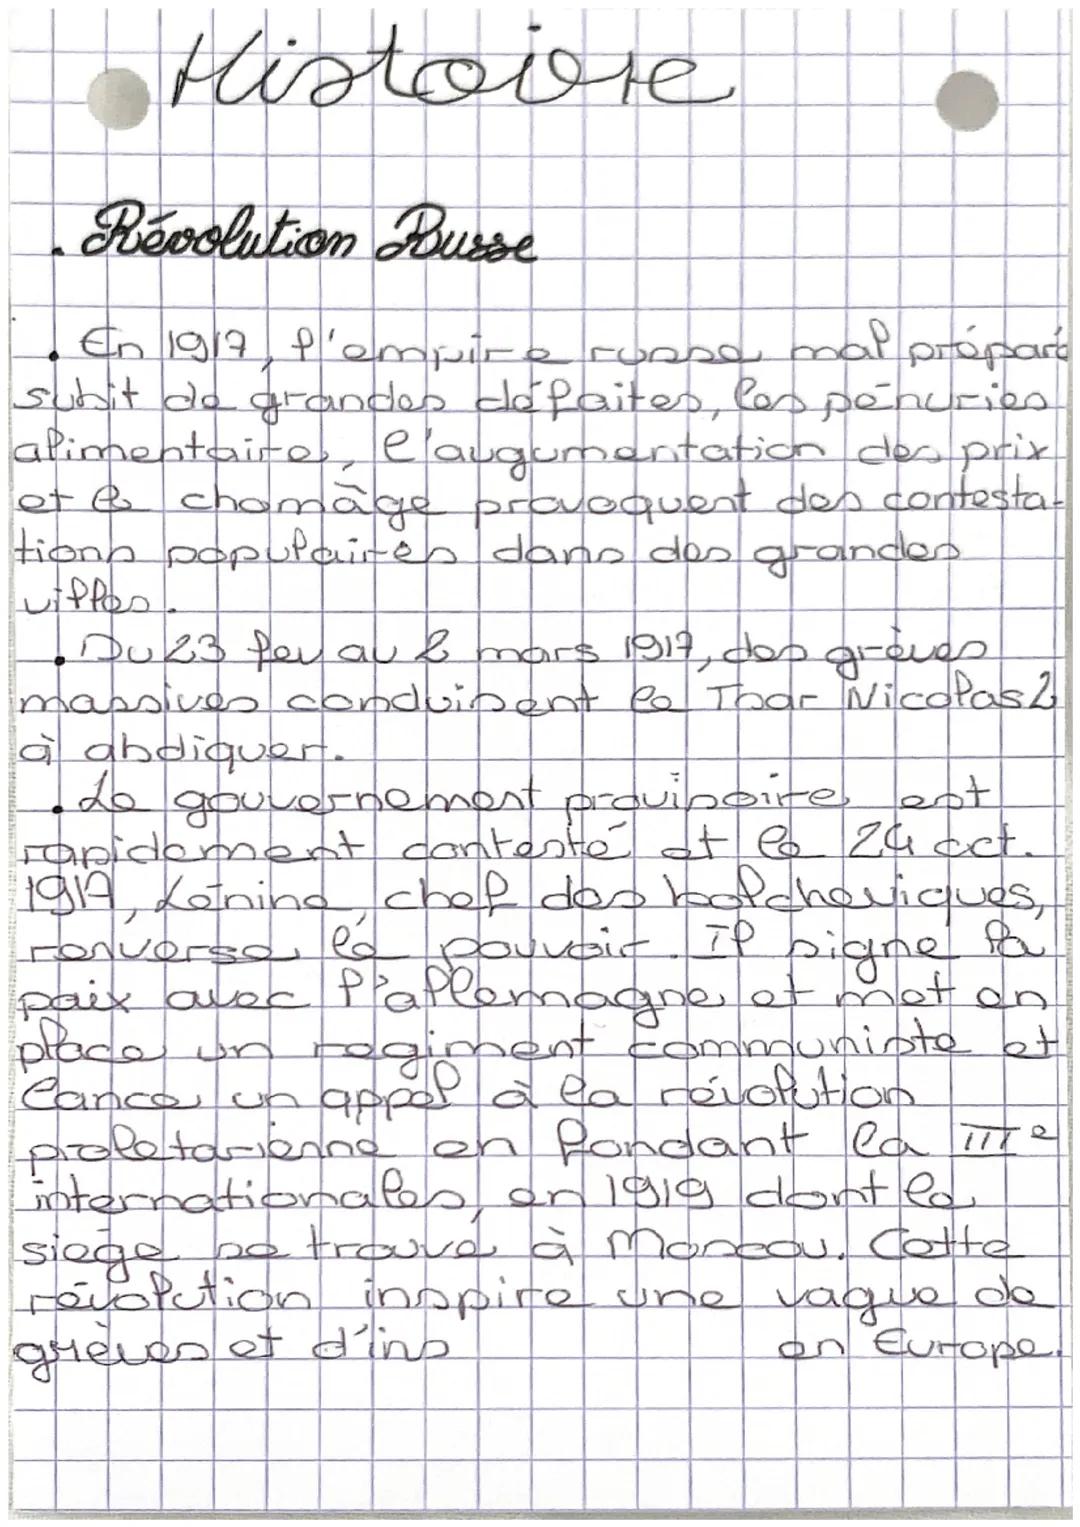 Histoire
. Révolution Russe
. En 1917, l'empire russe mal préparé
subit de grandes défaites, les pénuries
alimentaires, l'augumentation des prix
et le chomâge provoquent des contesta-
tions populaires dans des grandes
villes.
. Du 23 fev au 2 mars 1917, des grèves
massives conduisent le Tsar Nicolas 2
à abdiquer.
. Le gouvernement provisoire est
rapidement contesté et le 24 oct.
1917, Lénine, chef des bolcheviques,
renverse le pouvoir. Il signe la
paix avec l'allemagne et met en
place un regiment communiste et
lance un appel à la révolution
proletarienne en fondant la IIIe
internationales, en 1919 dont le
siège se trouve à Moscou. Cette
révolution inspire une vague de
grèves et d'ins en Europe.